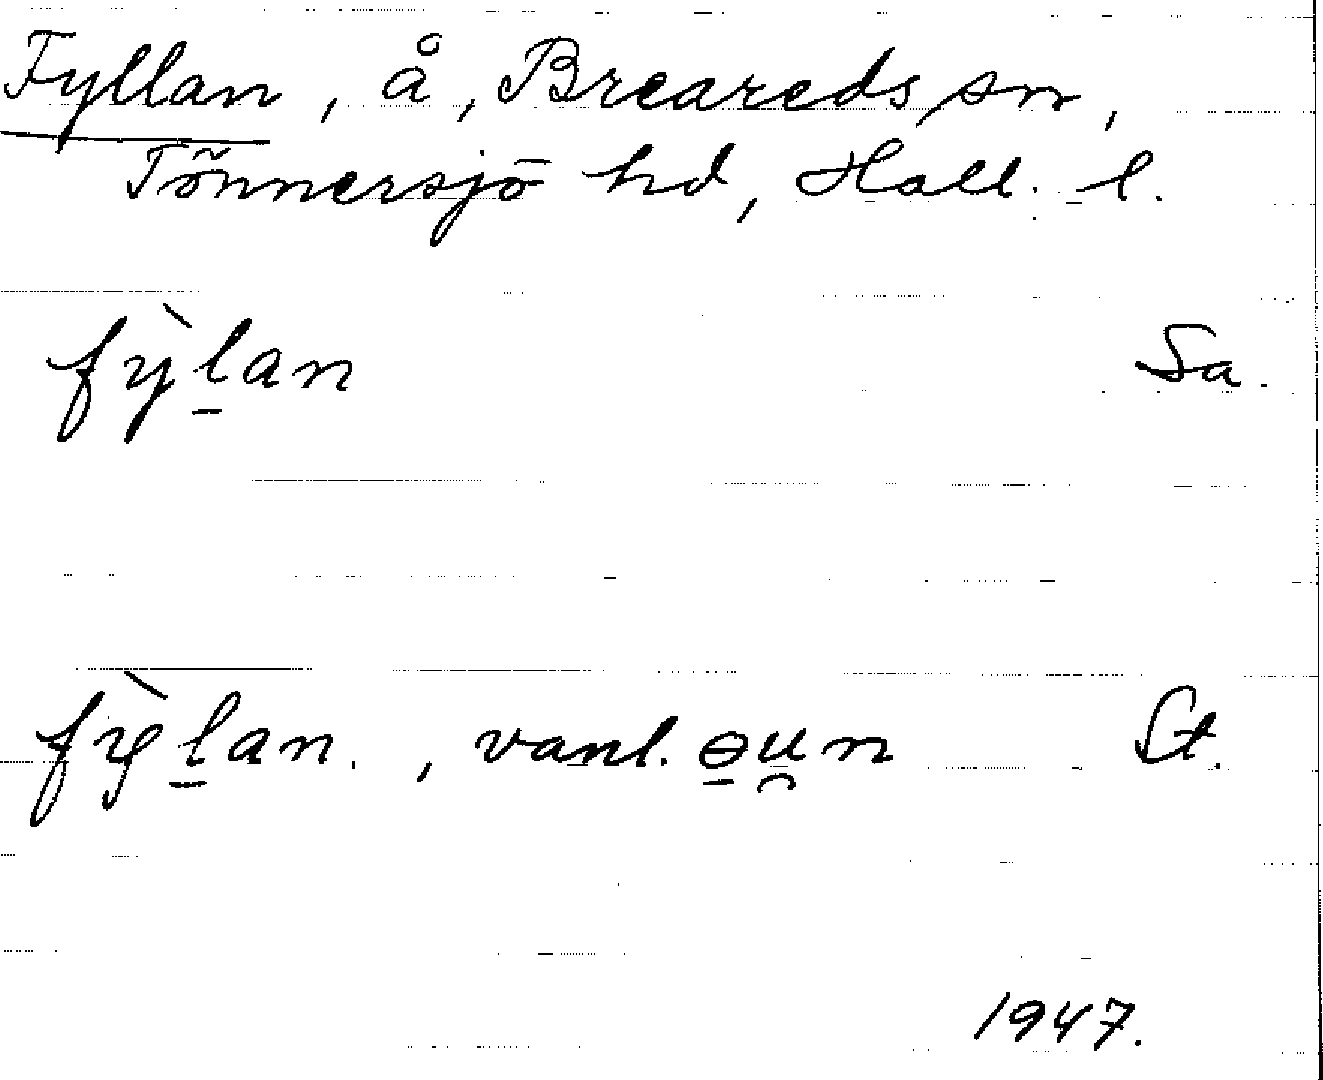 Fyllan, å, Breareds sn,
Tönnersjö hd, Hall. l.
fỳl̠an Sa.
fỳl̠an., vanl. ə̠u̯n St.
1947.